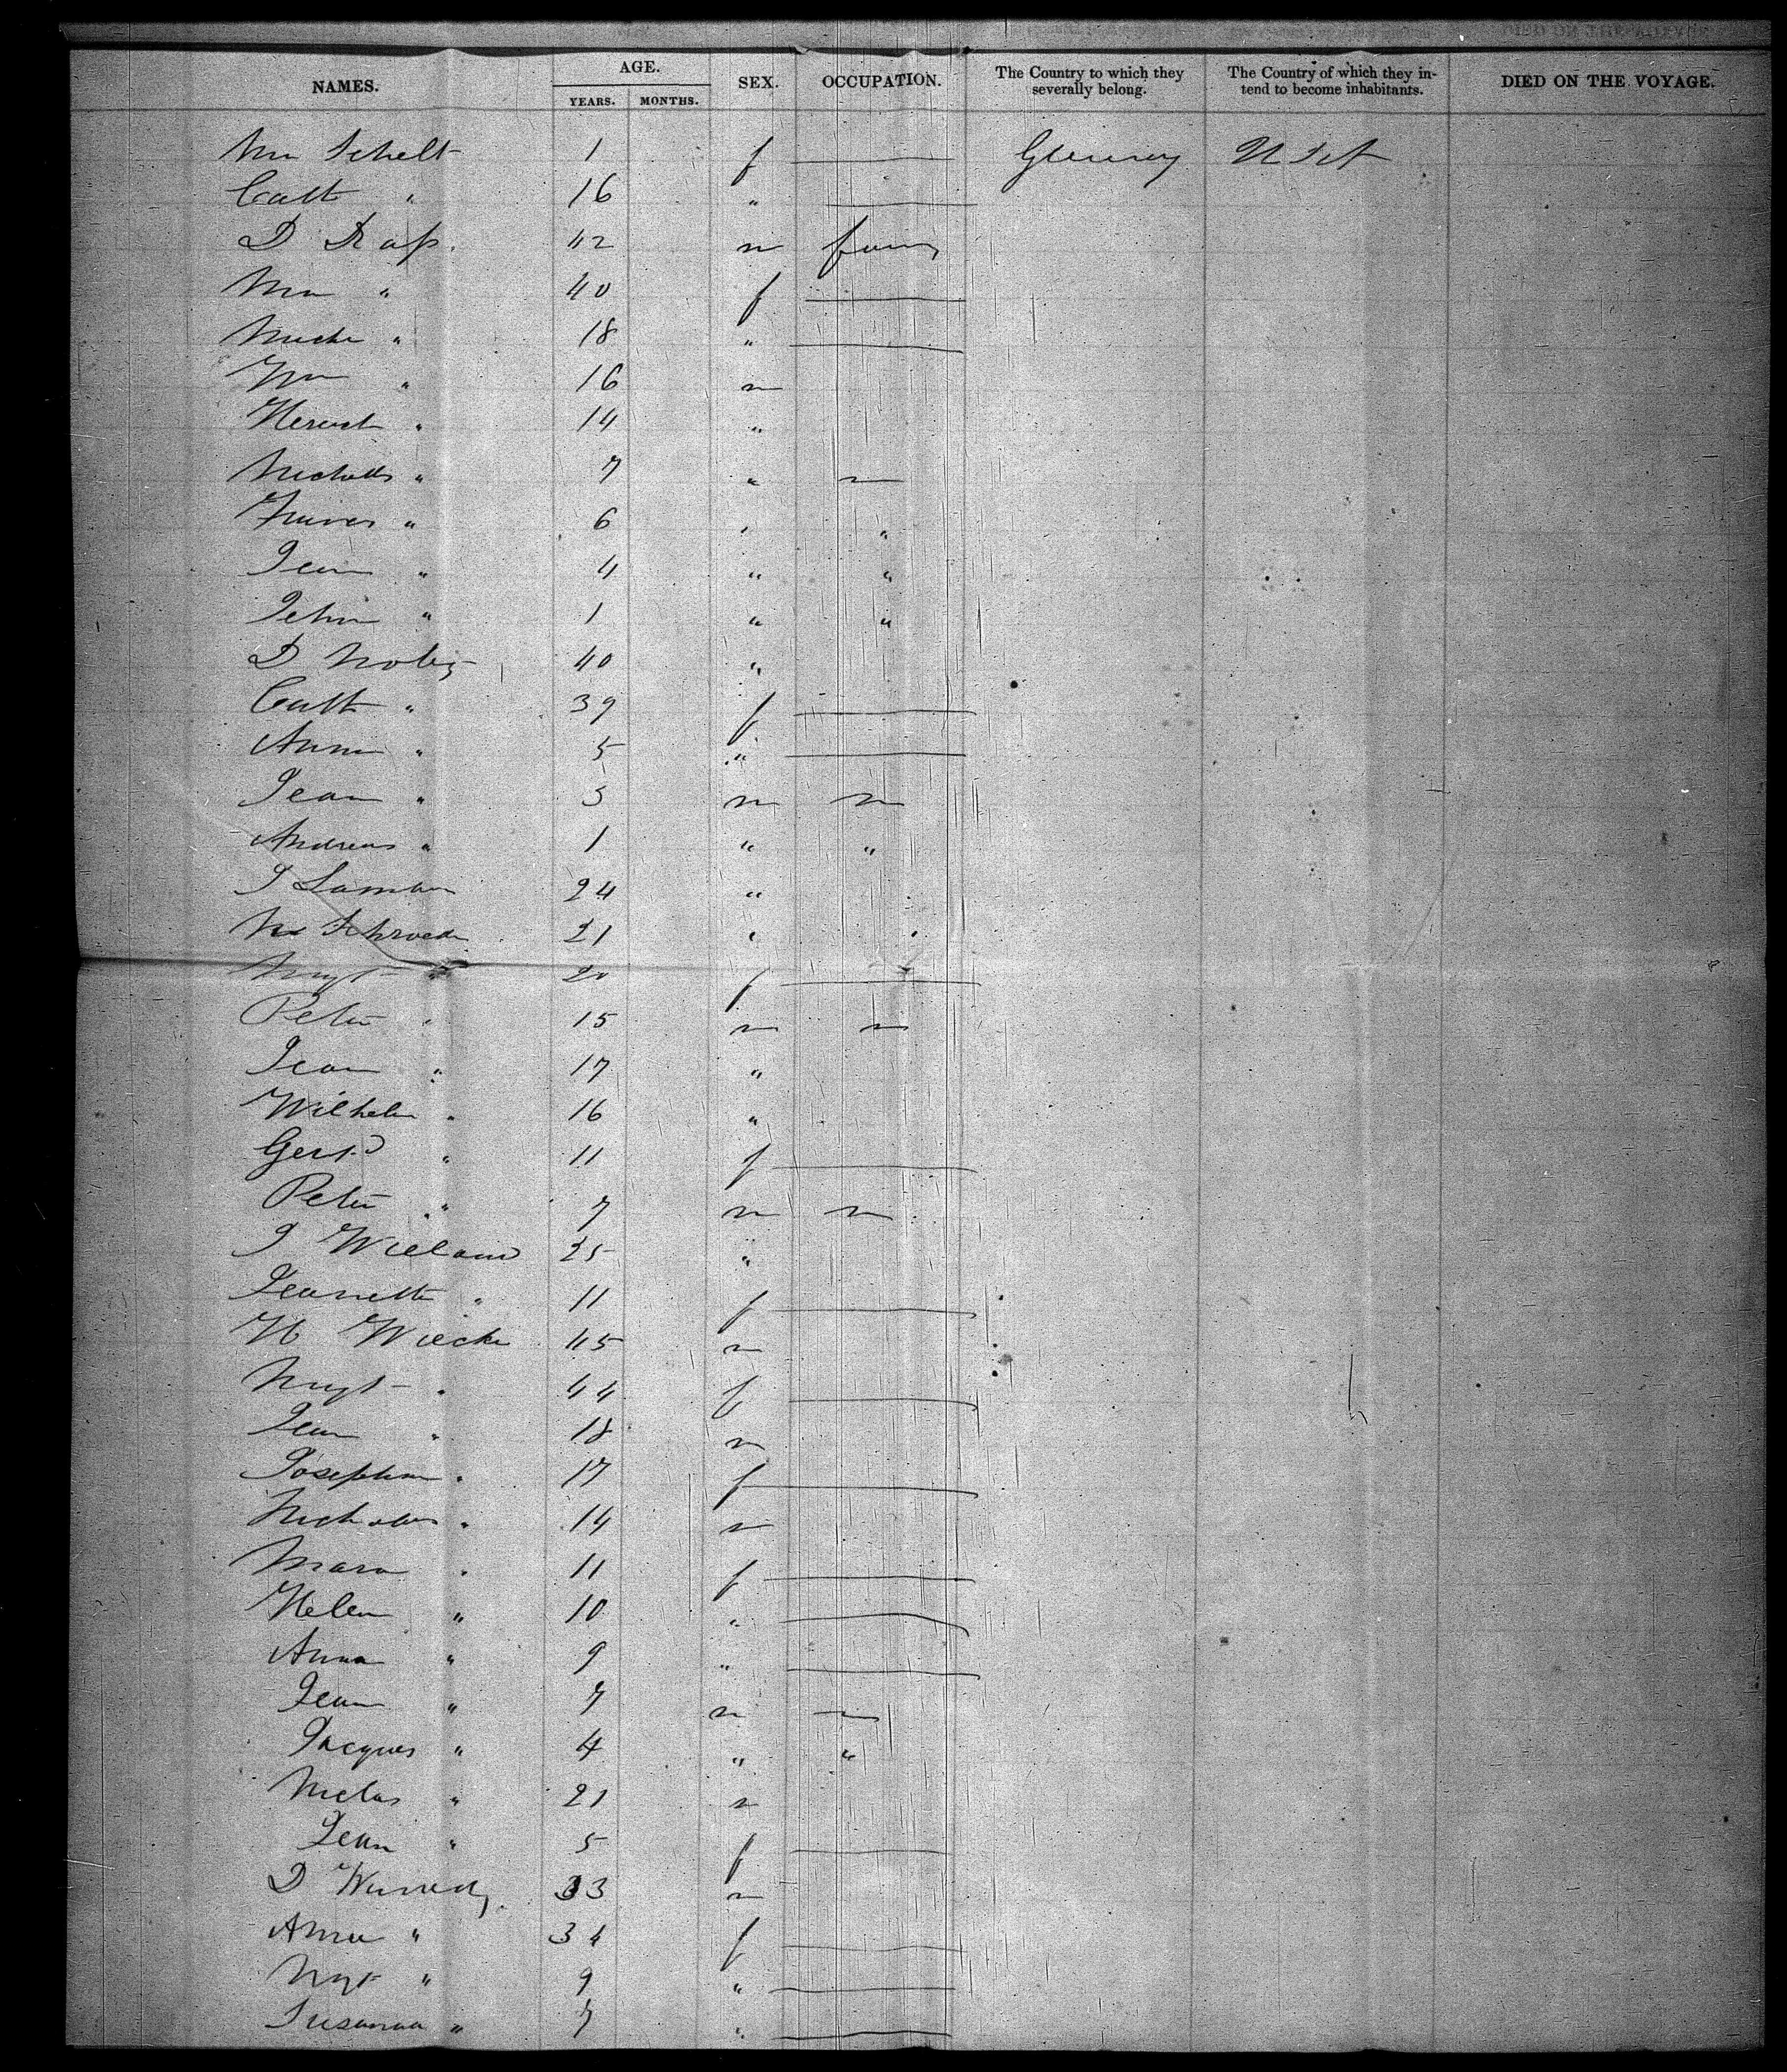 NAMES. AGE. YEARS. MONTHS. SEX. OCCUPATION. The Country to which they severally belong. The Country of which they intend to become inhabitants. DIED ON THE VOYAGE.
Schelt 1 f Germany U S A
Cath " 16 "
D Rass 42 m farm
" 40 f
" 18 "
Wm " 16 m
" 14 "
Nicholas " 7 " m
" 6 " "
Jean " 4 " "
John " 1 " "
D 40 "
Cath " 39 f
Anna " 5 "
Jean " 3 m m
Andreas " 1 " "
J 24 "
Schroeder 21 "
Mrgt " 20 f
Peter " 15 m m
Jean " 17 "
Wilhelm " 16 "
Gert " 11 f
Peter " 7 m m
J Wieland 25 "
Jeanette " 11 f
H Wiecke 45 m
Mrgt " 44 f
Jean " 18 m
Josephine " 17 f
Nicholas " 14 m
Maria " 11 f
Helen " 10 "
Anna " 9 "
Jean " 7 m m
Jacques " 4 " "
Niclas " 21 m
" 5 f
D 33 m
Anna " 34 f
Mrgt " 9 "
Susanna " 7 "